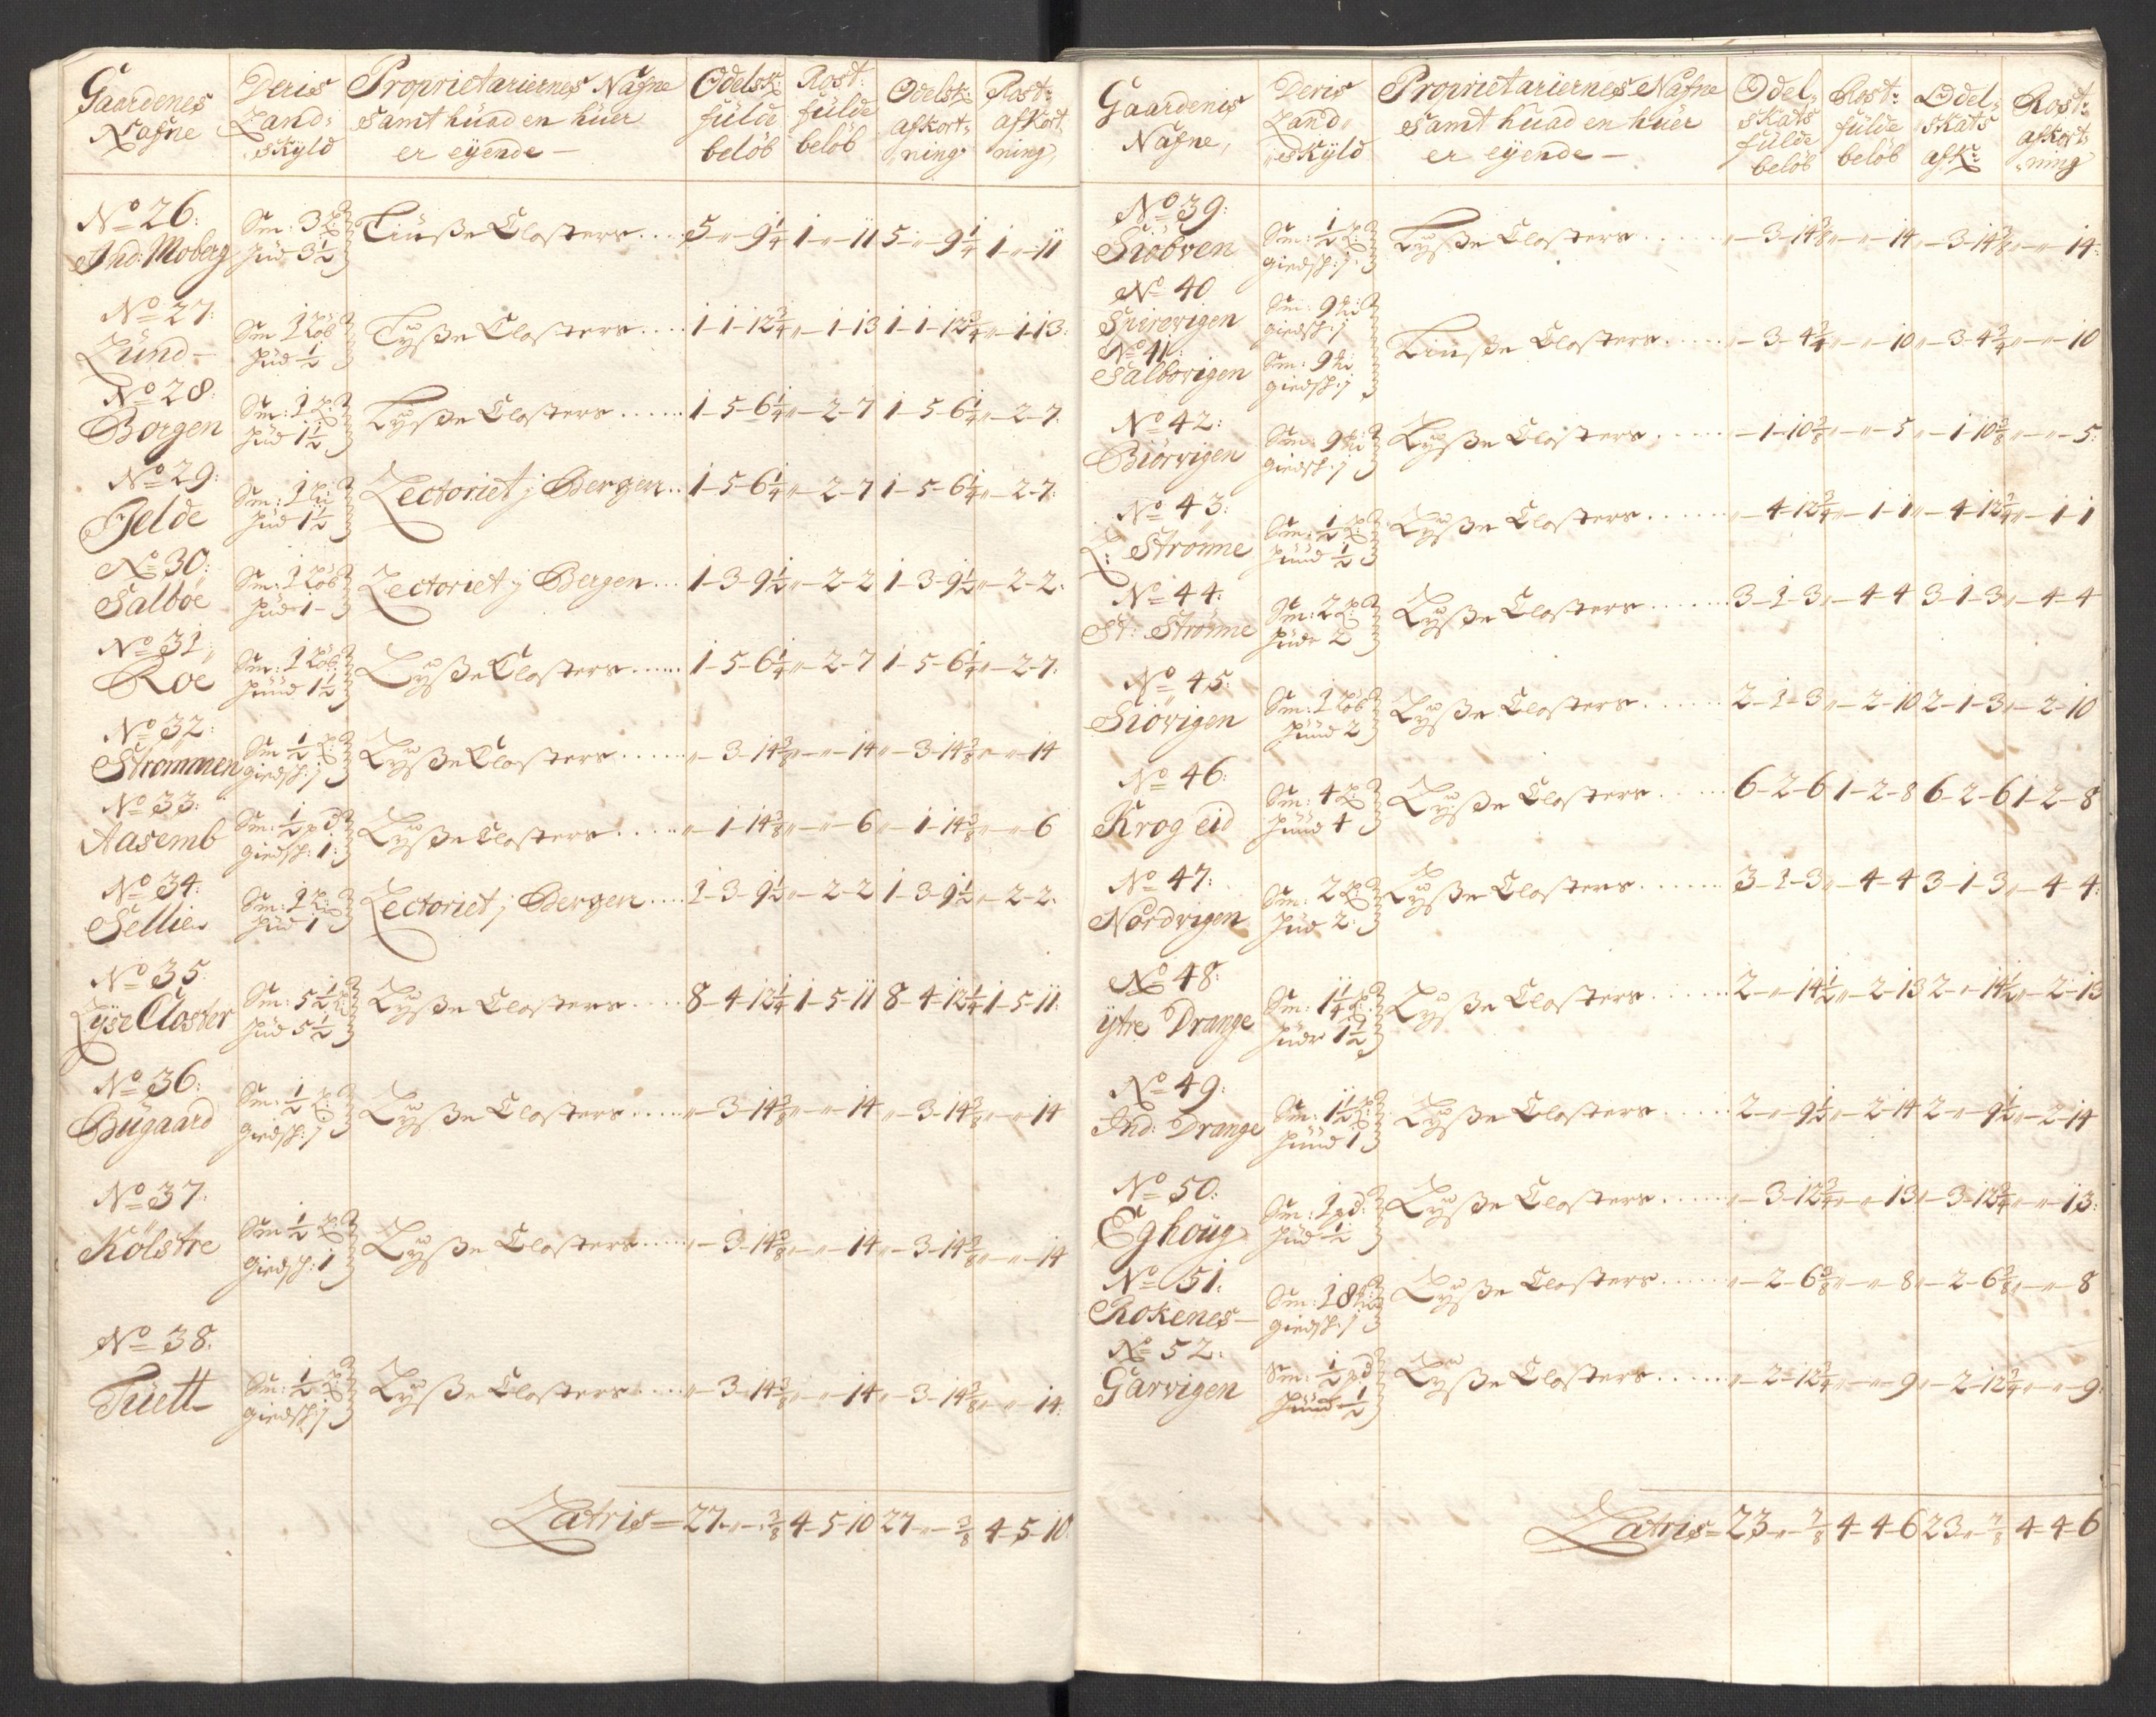 Gaardenes Nafne
Deris Land: skyld
Proprietariernes Nafne samt huad en huer er eÿende —
Odelsk: fulde beløb
Rost: fulde beløb
Odelsk: afkort: ning
Rost: afkort ning
No 26:
Ind: Moberg Sm: 3 Hud 3½ Closters .... 5 - „ - 9¼ 1 - „ - 11 5 - „ - 9¼ 1 - „ - 11
No 27:
Lund — Sm 1 Løb Hud ½ Lyse Closters .... 1-1-12¾ „-1-13 1-1-12¾ „-1-13:
No 28:
Borgen Sm: 1 Hud 1½ Lyse Closters ...... 1-5-6¼ „-2-7 1-5-6¼ „-2-7.
No 29:
Gelde Sm: 1 Hud 1½ Lectoriet j Bergen .. 1-5-6¼ „-2-7 1-5-6¼ „-2-7:
No 30:
Salboe Sm: 1 Løb Hud 1 - Lectoriet j Bergen ... 1-3-9½ „-2-2 1-3-9½ „-2-2:
No 31
Roe Sm: 1 Løb: Huud 1½ Lyße Closters ...... 1-5-6¼ „-2-7 1-5-6¼ „-2-7.
No 32:
Strømmen Sm ½ giedsk: j Lyße Closters ...... „-3-14⅜ „-„-14 „-3-14⅜ „-„-14
No 33:
Aasemb Sm: ½ pd: giedsk: 1: Lyße Closters ..... „-1-14⅜ „-„-6 „-1-14⅜ „-„-6
No 34:
Sellien Sm: 1 Hud 1 Lectoriet j Bergen .... 1-3-9½ „-2-2 1-3-9½ „-2-2.
No 35:
Lÿse Closter Sm: 5½ Hud 5½ Lyße Closters .... 8-4-12¼ 1-5-11 8-4-12¼ 1-5-11:
No 36:
Bugaard Sm: ½ giedsk: j Lyße Closters ..... „-3-14⅜ „-„-14 „-3-14⅜ „-„-14
No 37:
Kolstre Sm ½ giedsk: 1 Lyße Closters ..... „-3-14⅜ „-„-14 „-3-14⅜ „-„-14
No 38.
Tuett Sm: ½ giedsk: j Lyße Closters .... „-3-14⅜ „-„-14 „-3-14⅜ „-„-14:
Latris = 27-„-⅜ 4-5-10 27-„-⅜ 4-5-10:
Gaardenis Nafne,
Deris Land eskÿld
Proprietariernes Nafne samt huad en huer er eÿende —
Odel: skats fulde beløb
Rost: fulde beløb
Odel: skats afk:
Rost: afkort: ning
No 39:
Siøbven Sm: ½ giedsk: j. Lyße Closters ..... „-3-14⅜ „-„-14 „-3-14⅜ „-„-14:
No 40
Speirevigen Sm: 9 giedsk: j
No 41:
Salbovigen Sm: 9 giedsk: j Closters ..... „-3-4¾ „-„-10 „-3-4¾ „-„-10
No 42:
Biørvigen Sm: 9 giedsk: j Lyße Closters ..... „-1-10⅜ „-„-5 „-1-10⅜ „-„-5:
No 43:
L: Strønne Sm: ½ Huud ½ Lyße Closters ...... „-4-12¾ „-1-1 „-4-12¾ „-1-1
No 44:
St: Strønne Sm: 2 Hude 2 Lyße Closters ....... 3-1-3 „-4-4 3-1-3 „-4-4
No 45:
Siøvigen Sm: 1 Løb Huud 2 Lyße Closters ...... 2-1-3 „-2-10 2-1-3 „-2-10
No 46:
Krog eid Sm: 4 Huud 4 Lyße Closters ..... 6-2-6 1-2-8 6-2-6 1-2-8
No 47:
Nordvigen Sm: 2 Hud 2: Lyße Closters ....... 3-1-3 „-4-4 3-1-3 „-4-4:
No 48:
ÿtre Drange Sm: 1¼ Hude 1½ Lyße Closters ...... 2-„-14½ „-2-13 2-„-14½ „-2-13
No 49:
Ind: Drange Sm: 1½ Huud 1 Lyße Closters ..... 2-„-9½ „-2-14 2-„-9½ „-2-14
No 50:
Eghoug Sm: 1 pd: Hud ½ Lyße Closters ..... „-3-12¾ „-„-13 „-3-12¾ „-„-13:
No 51:
Rokenes — Sm: 18 giedsk: j Lyße Closters ..... „-2-6⅜ „-„-8 „-2-6⅜ „-„-8
No 52:
Garvigen Sm: ½ pd Huud ½ Lyße Closters ..... „-2-12¾ „-„-9 „-2-12¾ „-„-9:
Latris = 23-„-⅞ 4-4-6 23-„-⅞ 4-4-6